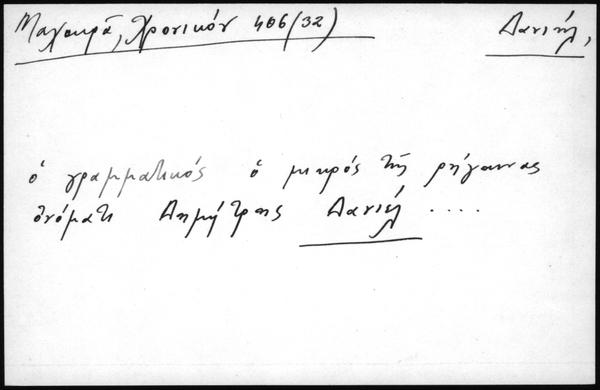 Μαχαιρᾶ, Χρονικόν 406/32) Δανιήλ,
ὁ γραμματικός ὁ μικρός τῆς ρήγαινας
ὀνόματι Δημήτρης Δανιήλ ....